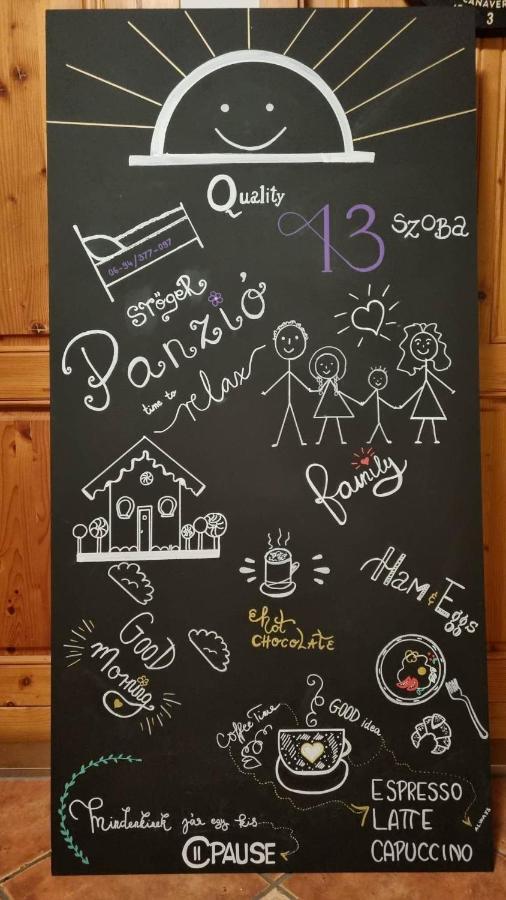 CANAVER
3
Quality
13 SZOBA
06-94/377-097
Stöger
Panzió
time to relax
family
Ham & Eggs
hot
CHOCOLATE
GOOD
Morning
Coffee Time
GOOD idea
ESPRESSO
LATTE
CAPUCCINO
ALWAYS
Mindenkinek jár egy kis
PAUSE